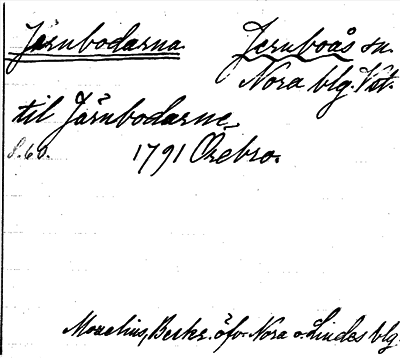 Järnbodarna Jernboås sn.
Nora blg. Vst.
til Järnbodarne
s. 60. 1791 Örebro.
Morelius, Beskr. öfv. Nora o. Lindes blg.